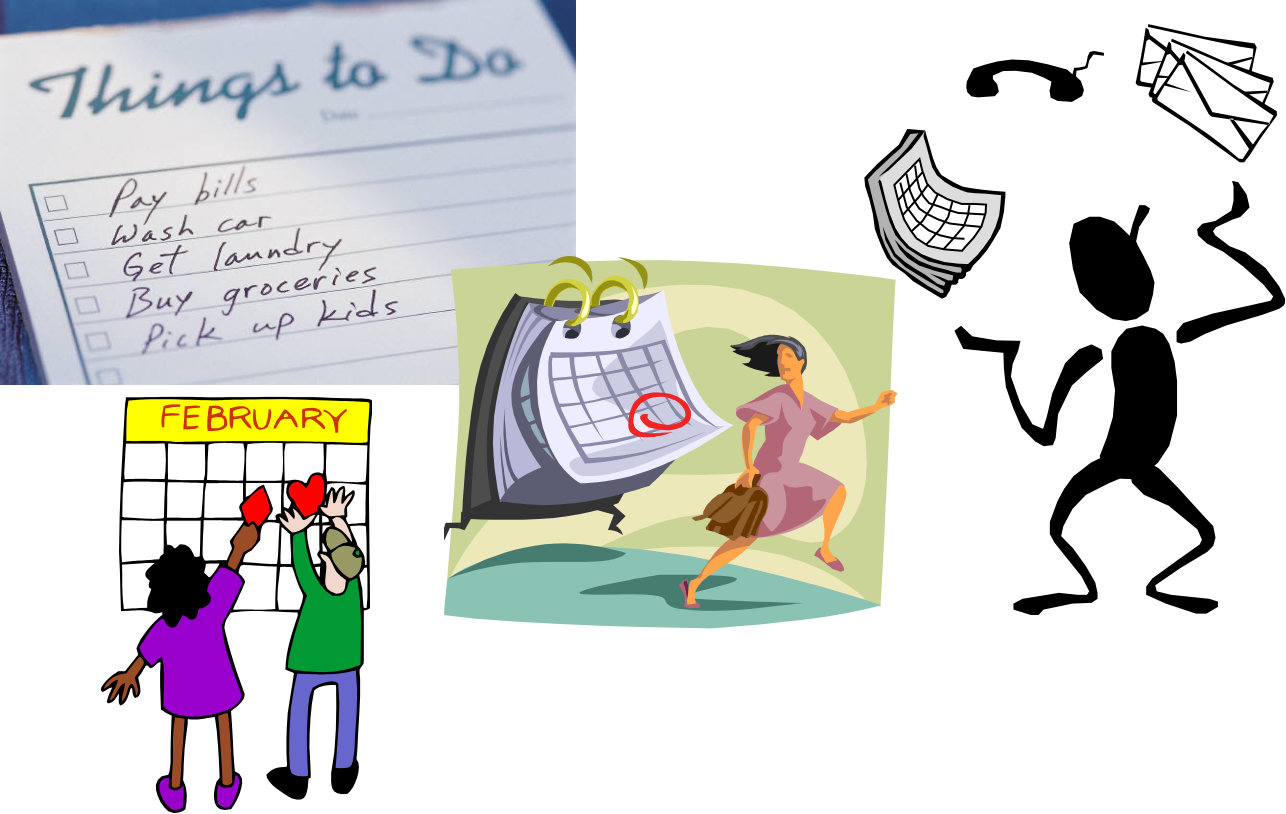 Things to Do
Date
Pay bills
Wash car
Get laundry
Buy groceries
Pick up kids
FEBRUARY